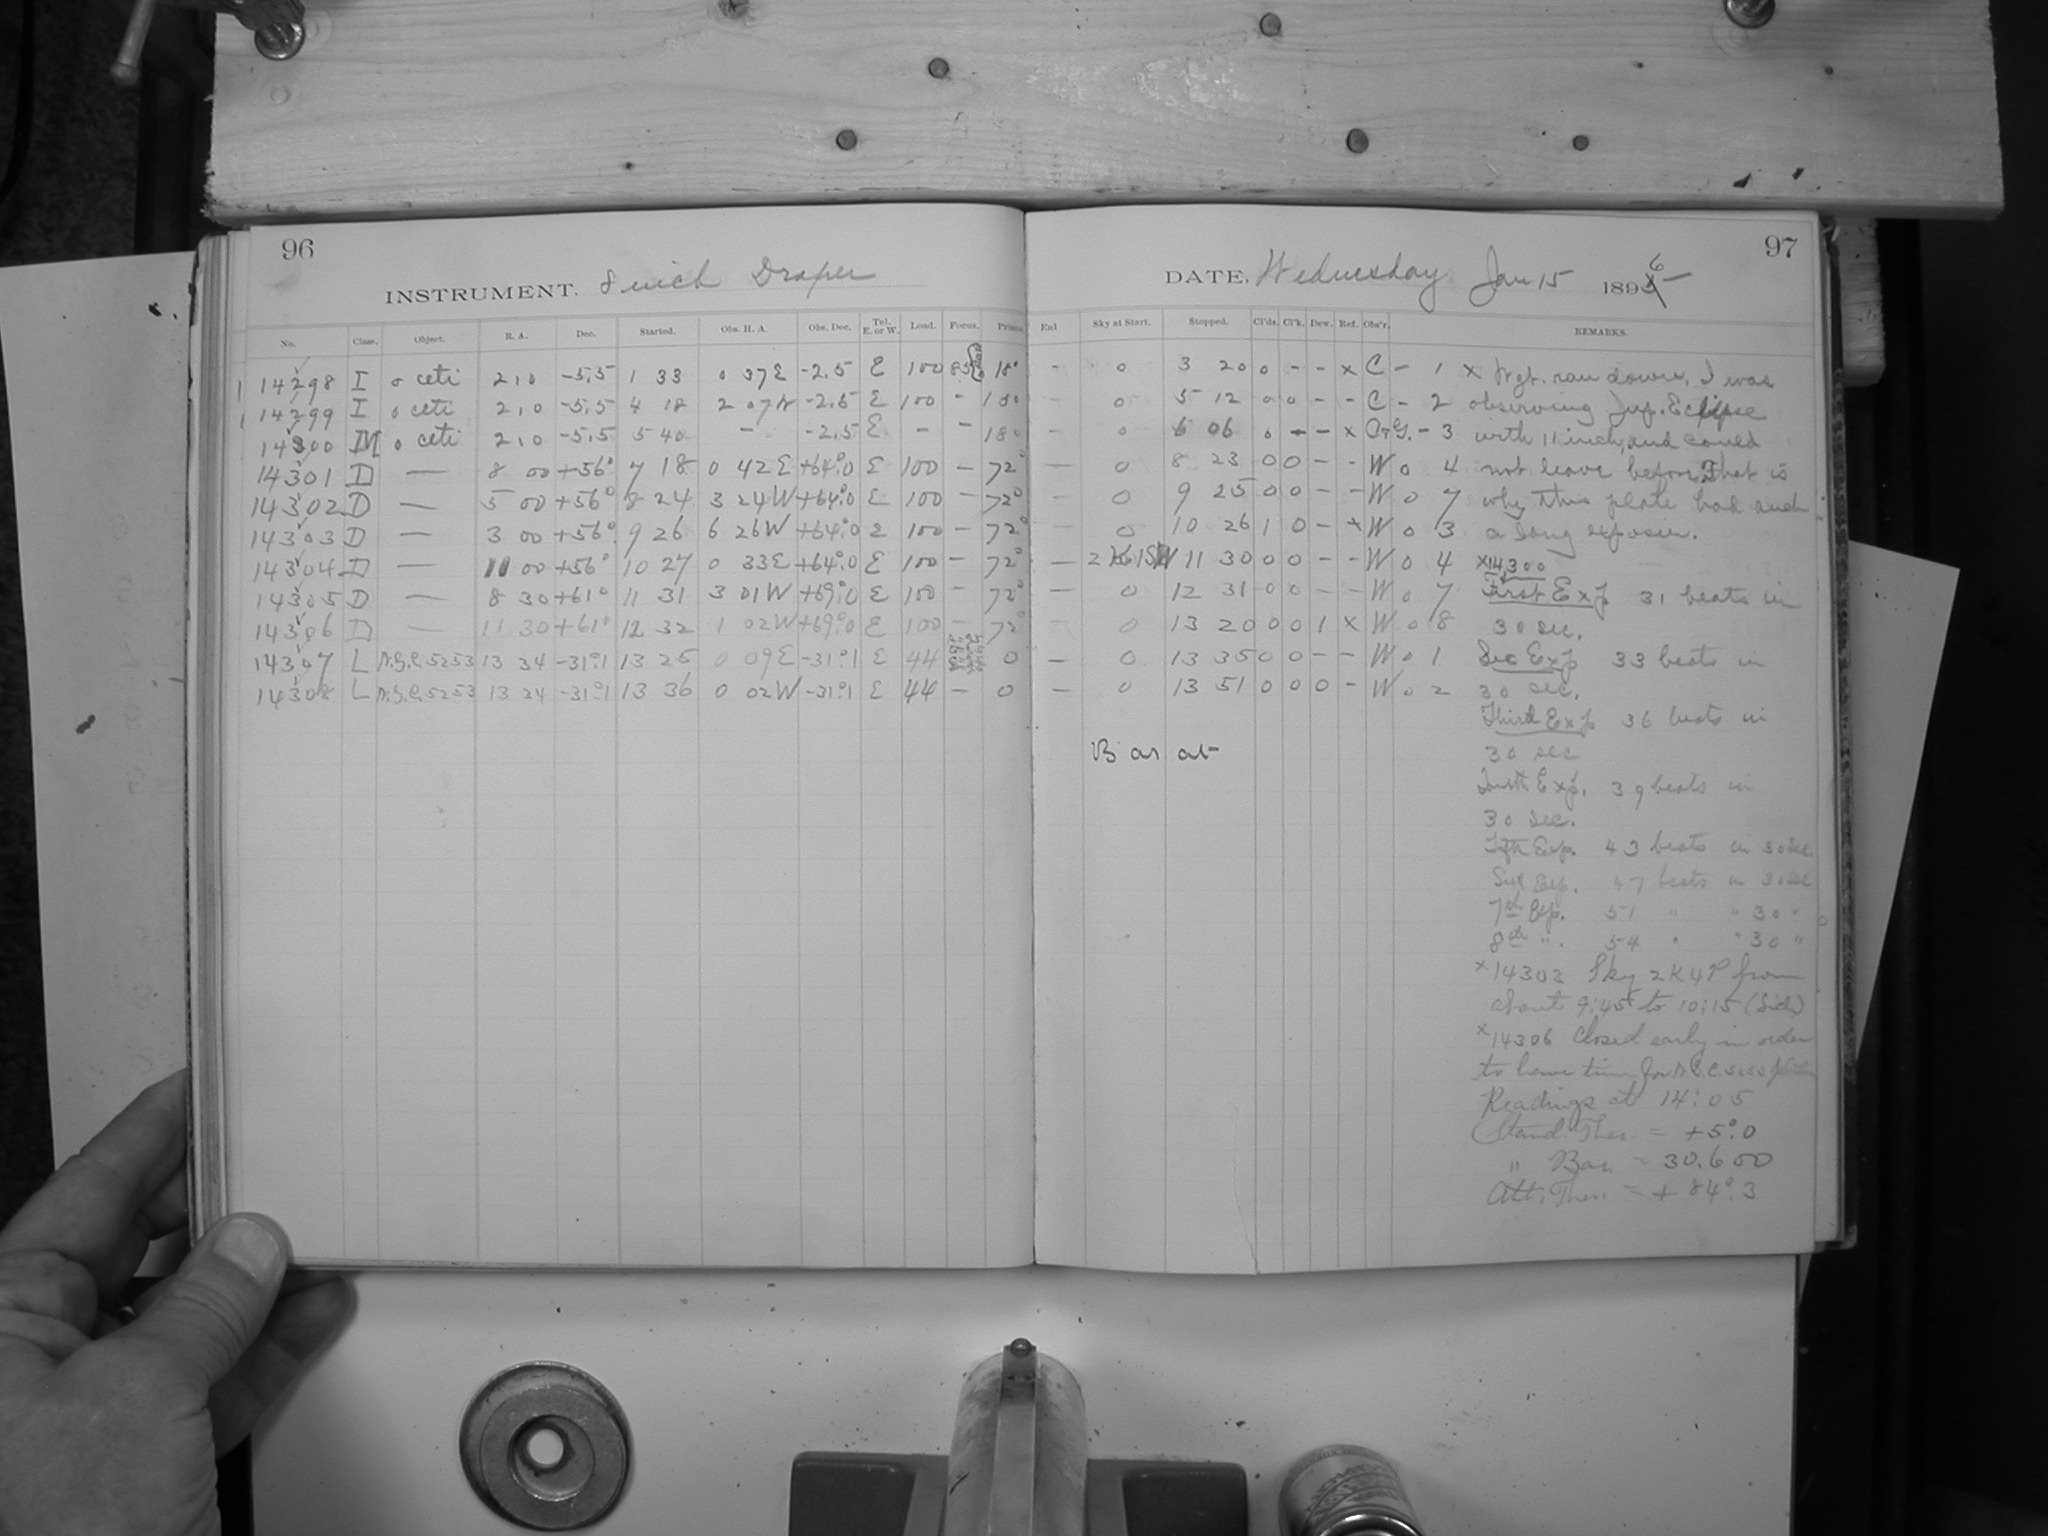 96
INSTRUMENT. 8 inch Draper
No. Class. Object. R. A. Dec. Started. Obs. H. A. Obs. Dec. Tel. E. or W. Load. Focus. Prisms
1 14298 I o ceti 2,0 -5.5 1 33 0 37E -2.5 E 100 18°
1 14299 I o ceti 2,0 -5.5 4 18 2 07W -2.5 E 100 - 18°
14300 III o ceti 2,0 -5.5 5 40 - -2.5 E - - 18°
14301 D — 8 00 +56° 7 18 0 42E +64°.0 E 100 - 72°
14302 D — 5 00 +56° 8 24 3 24W +64°.0 E 100 - 72°
14303 D — 3 00 +56° 9 26 6 26W +64°.0 E 100 - 72°
14304 D — 11 00 +56° 10 27 0 33E +64°.0 E 100 - 72°
14305 D — 8 30 +61° 11 31 3 01W +69°.0 E 100 - 72°
14306 D — 11 30 +61° 12 32 1 02W +69°.0 E 100 - 72°
14307 L N.G.C. 5253 13 34 -31°.1 13 25 0 09E -31°.1 E 44 0
14308 L N.G.C. 5253 13 34 -31°.1 13 36 0 02W -31°.1 E 44 - 0
97
DATE, Wednesday Jan 15 1896
Enl Sky at Start. Stopped. Cl'ds. Cl'k. Dew. Ref. Obs'r. REMARKS.
- 0 3 20 0 - - x C - 1
0 5 12 0 0 - - C - 2
0 6 06 0 - - x C+G. - 3
— 0 8 23 0 0 - - W 0 4
— 0 9 25 0 0 - - W 0 7
0 10 26 1 0 - x W 0 3
— 11 30 0 0 - - W 0 4
0 12 31 0 0 - - W 0 7
— 0 13 20 0 0 1 x W 0 8
— 0 13 35 0 0 - - W 0 1
— 0 13 51 0 0 0 - W 0 2
Bar at
x Wgt. ran down, I was
observing Jup. Eclipse
with 11 inch, and could
not leave before. That is
why this plate had such
a long exposure.
x14300
First Exp 31 beats in
30 sec.
Sec Exp 33 beats in
30 sec.
Third Exp 36 beats in
30 sec
Fourth Exp. 39 beats in
30 sec.
Fifth Exp. 43 beats in 30 sec.
Sixt Exp. 47 beats in 30 sec
7th Exp. 51 " " 30 "
8th ". 54 " " 30 "
x14303 Sky 2K4P from
about 9:45 to 10:15 (Sid)
x14306 Closed early in order
to have time for N.G.C. 5253
Readings at 14:05
Stand. Ther. = +5°.0
" Bar. = 30.600
Att. Ther. = +84°.3